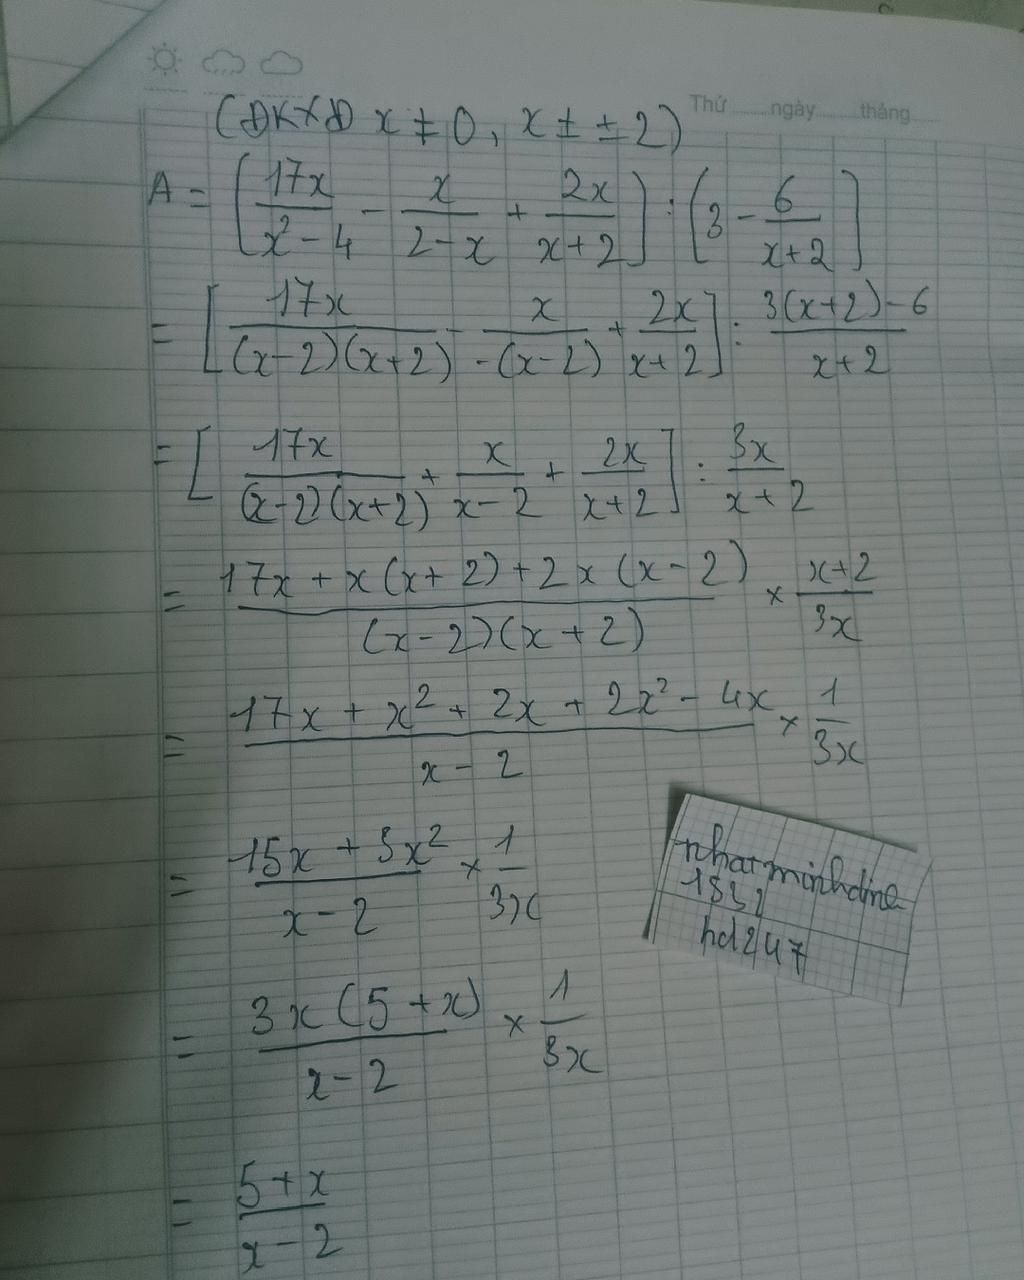 Thứ ........ ngày ........ tháng ........
(ĐKXĐ x ≠ 0, x ± ± 2)
A = [17x/(x² - 4) - x/(2 - x) + 2x/(x + 2)] : (3 - 6/(x + 2)]
= [17x/((x - 2)(x + 2)) - x/(-(x - 2)) + 2x/(x + 2)] : (3(x + 2) - 6)/(x + 2)
= [17x/((x - 2)(x + 2)) + x/(x - 2) + 2x/(x + 2)] : 3x/(x + 2)
= (17x + x(x + 2) + 2x(x - 2))/((x - 2)(x + 2)) × (x + 2)/3x
= (17x + x² + 2x + 2x² - 4x)/(x - 2) × 1/3x
= (15x + 3x²)/(x - 2) × 1/3x
nhatminhdinh
1832
hd247
= 3x(5 + x)/(x - 2) × 1/3x
= (5 + x)/(x - 2)